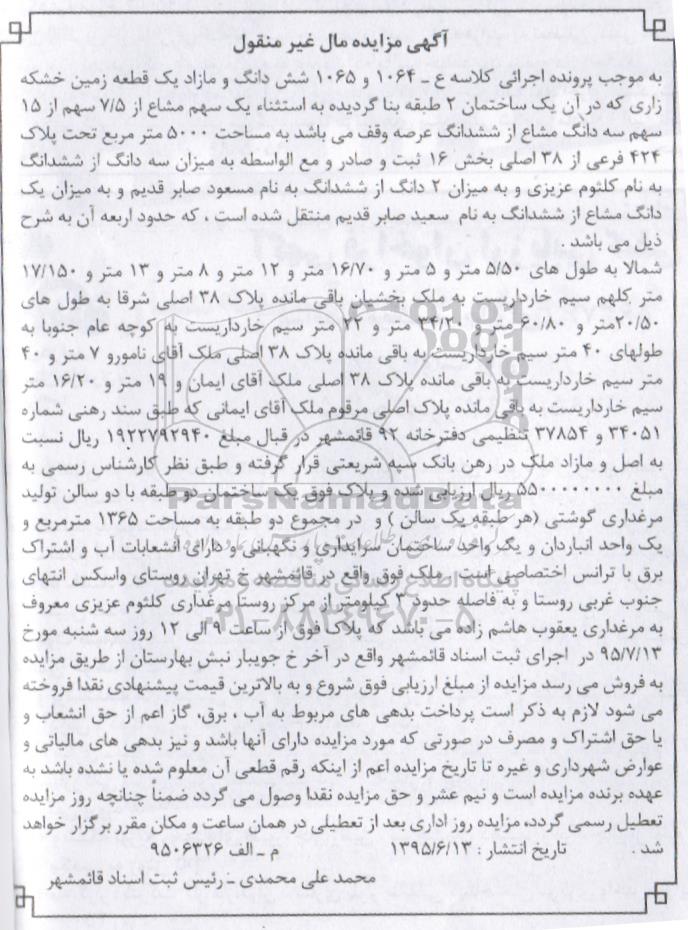 آگهی مزایده مال غیر منقول
به موجب پرونده اجرائی کلاسه ع ـ ۱۰۶۴ و ۱۰۶۵ شش دانگ و مازاد یک قطعه زمین خشکه
زاری که در آن یک ساختمان ۲ طبقه بنا گردیده به استثناء یک سهم مشاع از ۷/۵ سهم از ۱۵
سهم سه دانگ مشاع از ششدانگ عرصه وقف می باشد به مساحت ۵۰۰۰ متر مربع تحت پلاک
۴۲۴ فرعی از ۳۸ اصلی بخش ۱۶ ثبت و صادر و مع الواسطه به میزان سه دانگ از ششدانگ
به نام کلثوم عزیزی و به میزان ۲ دانگ از ششدانگ به نام مسعود صابر قدیم و به میزان یک
دانگ مشاع از ششدانگ به نام سعید صابر قدیم منتقل شده است ، که حدود اربعه آن به شرح
ذیل می باشد .
شمالا به طول های ۵/۵۰ متر و ۵ متر و ۱۶/۷۰ متر و ۱۲ متر و ۸ متر و ۱۳ متر و ۱۷/۱۵۰
متر کلهم سیم خارداریست به ملک بخشیان باقی مانده پلاک ۳۸ اصلی شرقا به طول های
۲۰/۵۰متر و ۶۰/۸۰ متر و ۳۴/۲۰ متر و ۲۲ متر سیم خارداریست به کوچه عام جنوبا به
طولهای ۴۰ متر سیم خارداریست به باقی مانده پلاک ۳۸ اصلی ملک آقای نامورو ۷ متر و ۴۰
متر سیم خارداریست به باقی مانده پلاک ۳۸ اصلی ملک آقای ایمان و ۱۹ متر و ۱۶/۲۰ متر
سیم خارداریست به باقی مانده پلاک اصلی مرقوم ملک آقای ایمانی که طبق سند رهنی شماره
۳۴۰۵۱ و ۳۷۸۵۴ تنظیمی دفترخانه ۹۲ قائمشهر در قبال مبلغ ۱۹۲۲۷۹۲۹۴۰ ریال نسبت
به اصل و مازاد ملک در رهن بانک سپه شریعتی قرار گرفته و طبق نظر کارشناس رسمی به
مبلغ ۵۵۰۰۰۰۰۰۰۰ ریال ارزیابی شده و پلاک فوق یک ساختمان دو طبقه با دو سالن تولید
مرغداری گوشتی (هر طبقه یک سالن ) و در مجموع دو طبقه به مساحت ۱۳۶۵ مترمربع و
یک واحد انباردان و یک واحد ساختمان سرایداری و نگهبانی و دارای انشعابات آب و اشتراک
برق با ترانس اختصاصی است . ملک فوق واقع در قائمشهر خ تهران روستای واسکس انتهای
جنوب غربی روستا و به فاصله حدود ۳ کیلومتر از مرکز روستا، مرغداری کلثوم عزیزی معروف
به مرغداری یعقوب هاشم زاده می باشد که پلاک فوق از ساعت ۹ الی ۱۲ روز سه شنبه مورخ
۹۵/۷/۱۳ در اجرای ثبت اسناد قائمشهر واقع در آخر خ جویبار نبش بهارستان از طریق مزایده
به فروش می رسد مزایده از مبلغ ارزیابی فوق شروع و به بالاترین قیمت پیشنهادی نقدا فروخته
می شود لازم به ذکر است پرداخت بدهی های مربوط به آب ، برق، گاز اعم از حق انشعاب و
یا حق اشتراک و مصرف در صورتی که مورد مزایده دارای آنها باشد و نیز بدهی های مالیاتی و
عوارض شهرداری و غیره تا تاریخ مزایده اعم از اینکه رقم قطعی آن معلوم شده یا نشده باشد به
عهده برنده مزایده است و نیم عشر و حق مزایده نقدا وصول می گردد ضمنا چنانچه روز مزایده
تعطیل رسمی گردد، مزایده روز اداری بعد از تعطیلی در همان ساعت و مکان مقرر برگزار خواهد
شد . تاریخ انتشار : ۱۳۹۵/۶/۱۳ م ـ الف ۹۵۰۶۳۲۶
محمد علی محمدی ـ رئیس ثبت اسناد قائمشهر
ParsNamadData
۰۲۱-۸۸۳۴۹۶۷۰-۵